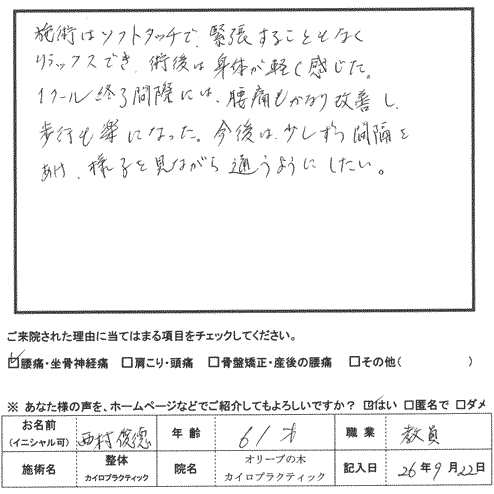 施術はソフトタッチで、緊張することもなく
リラックスでき、術後は身体が軽く感じた。
1クール終了間際には、腰痛もかなり改善し、
歩行も楽になった。今後は、少しずつ間隔を
あけ、様子を見ながら通うようにしたい。
ご来院された理由に当てはまる項目をチェックしてください。
☑腰痛・坐骨神経痛 □肩こり・頭痛 □骨盤矯正・産後の腰痛 □その他( )
※ あなた様の声を、ホームページなどでご紹介してもよろしいですか? ☑はい □匿名で □ダメ
お名前 (イニシャル可) 西村俊徳 年齢 61才 職業 教員
施術名 整体 カイロプラクティック 院名 オリーブの木 カイロプラクティック 記入日 26年9月22日